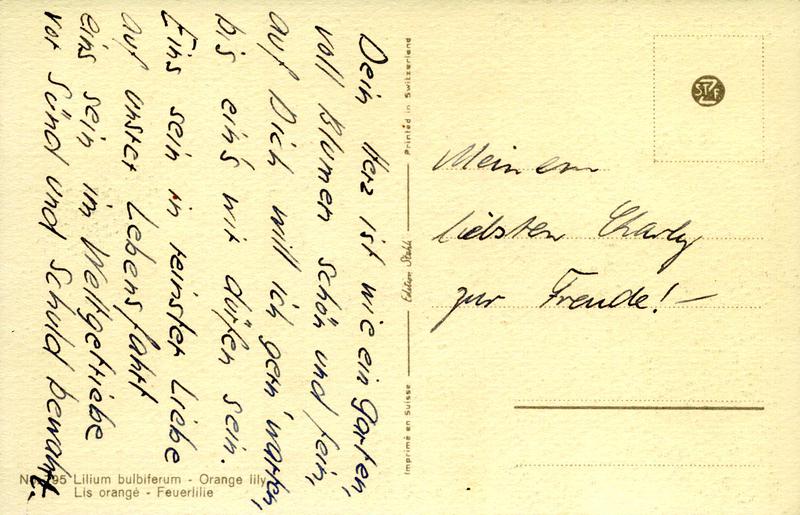 Dein Herz ist wie ein Garten,
voll Blumen schön und fein,
auf Dich will ich gern' warten,
bis eins wir düfen sein.
Eins sein in reinster Liebe
auf unsrer Lebensfahrt
eins sein im Weltgetriebe
vor Sünd und Schuld bewahrt.
Printed in Switzerland
Edition Stehli
Imprimé en Suisse
STZF
Meinem
liebsten Charly
zur Freude! —
95 Lilium bulbiferum - Orange lily
Lis orangé - Feuerlilie